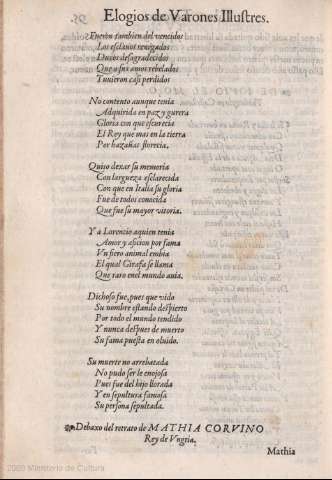 Elogios de Varones Illustres.
Fueron tambien del vencidos
Los esclauos renegados
Duros desagradecidos
Que a sus amos rebelados
Tuuieron casi perdidos
No contento aunque tenia
Adquirida en paz y guerra
Gloria con que escurecia
El Rey que mas en la tierra
Por hazañas florecia.
Quiso dexar su memoria
Con largueza esclarecida
Con que en Italia su gloria
Fue de todos conocida
Que fue su mayor vitoria.
Y a Lorencio aquien tenia
Amor y aficion por fama
Vn fiero animal embia
El qual Girafa se llama
Que raro en el mundo auia.
Dichoso fue, pues que vido
Su nombre estando despierto
Por todo el mundo tendido
Y nunca despues de muerto
Su fama puesta en oluido.
Su muerte no arrebatada
No pudo ser le enojosa
Pues fue del hijo llorada
Y en sepultura famosa
Su persona sepultada.
Debaxo del retrato de MATHIA CORVINO
Rey de Vngria.
Mathia
2009 Ministerio de Cultura